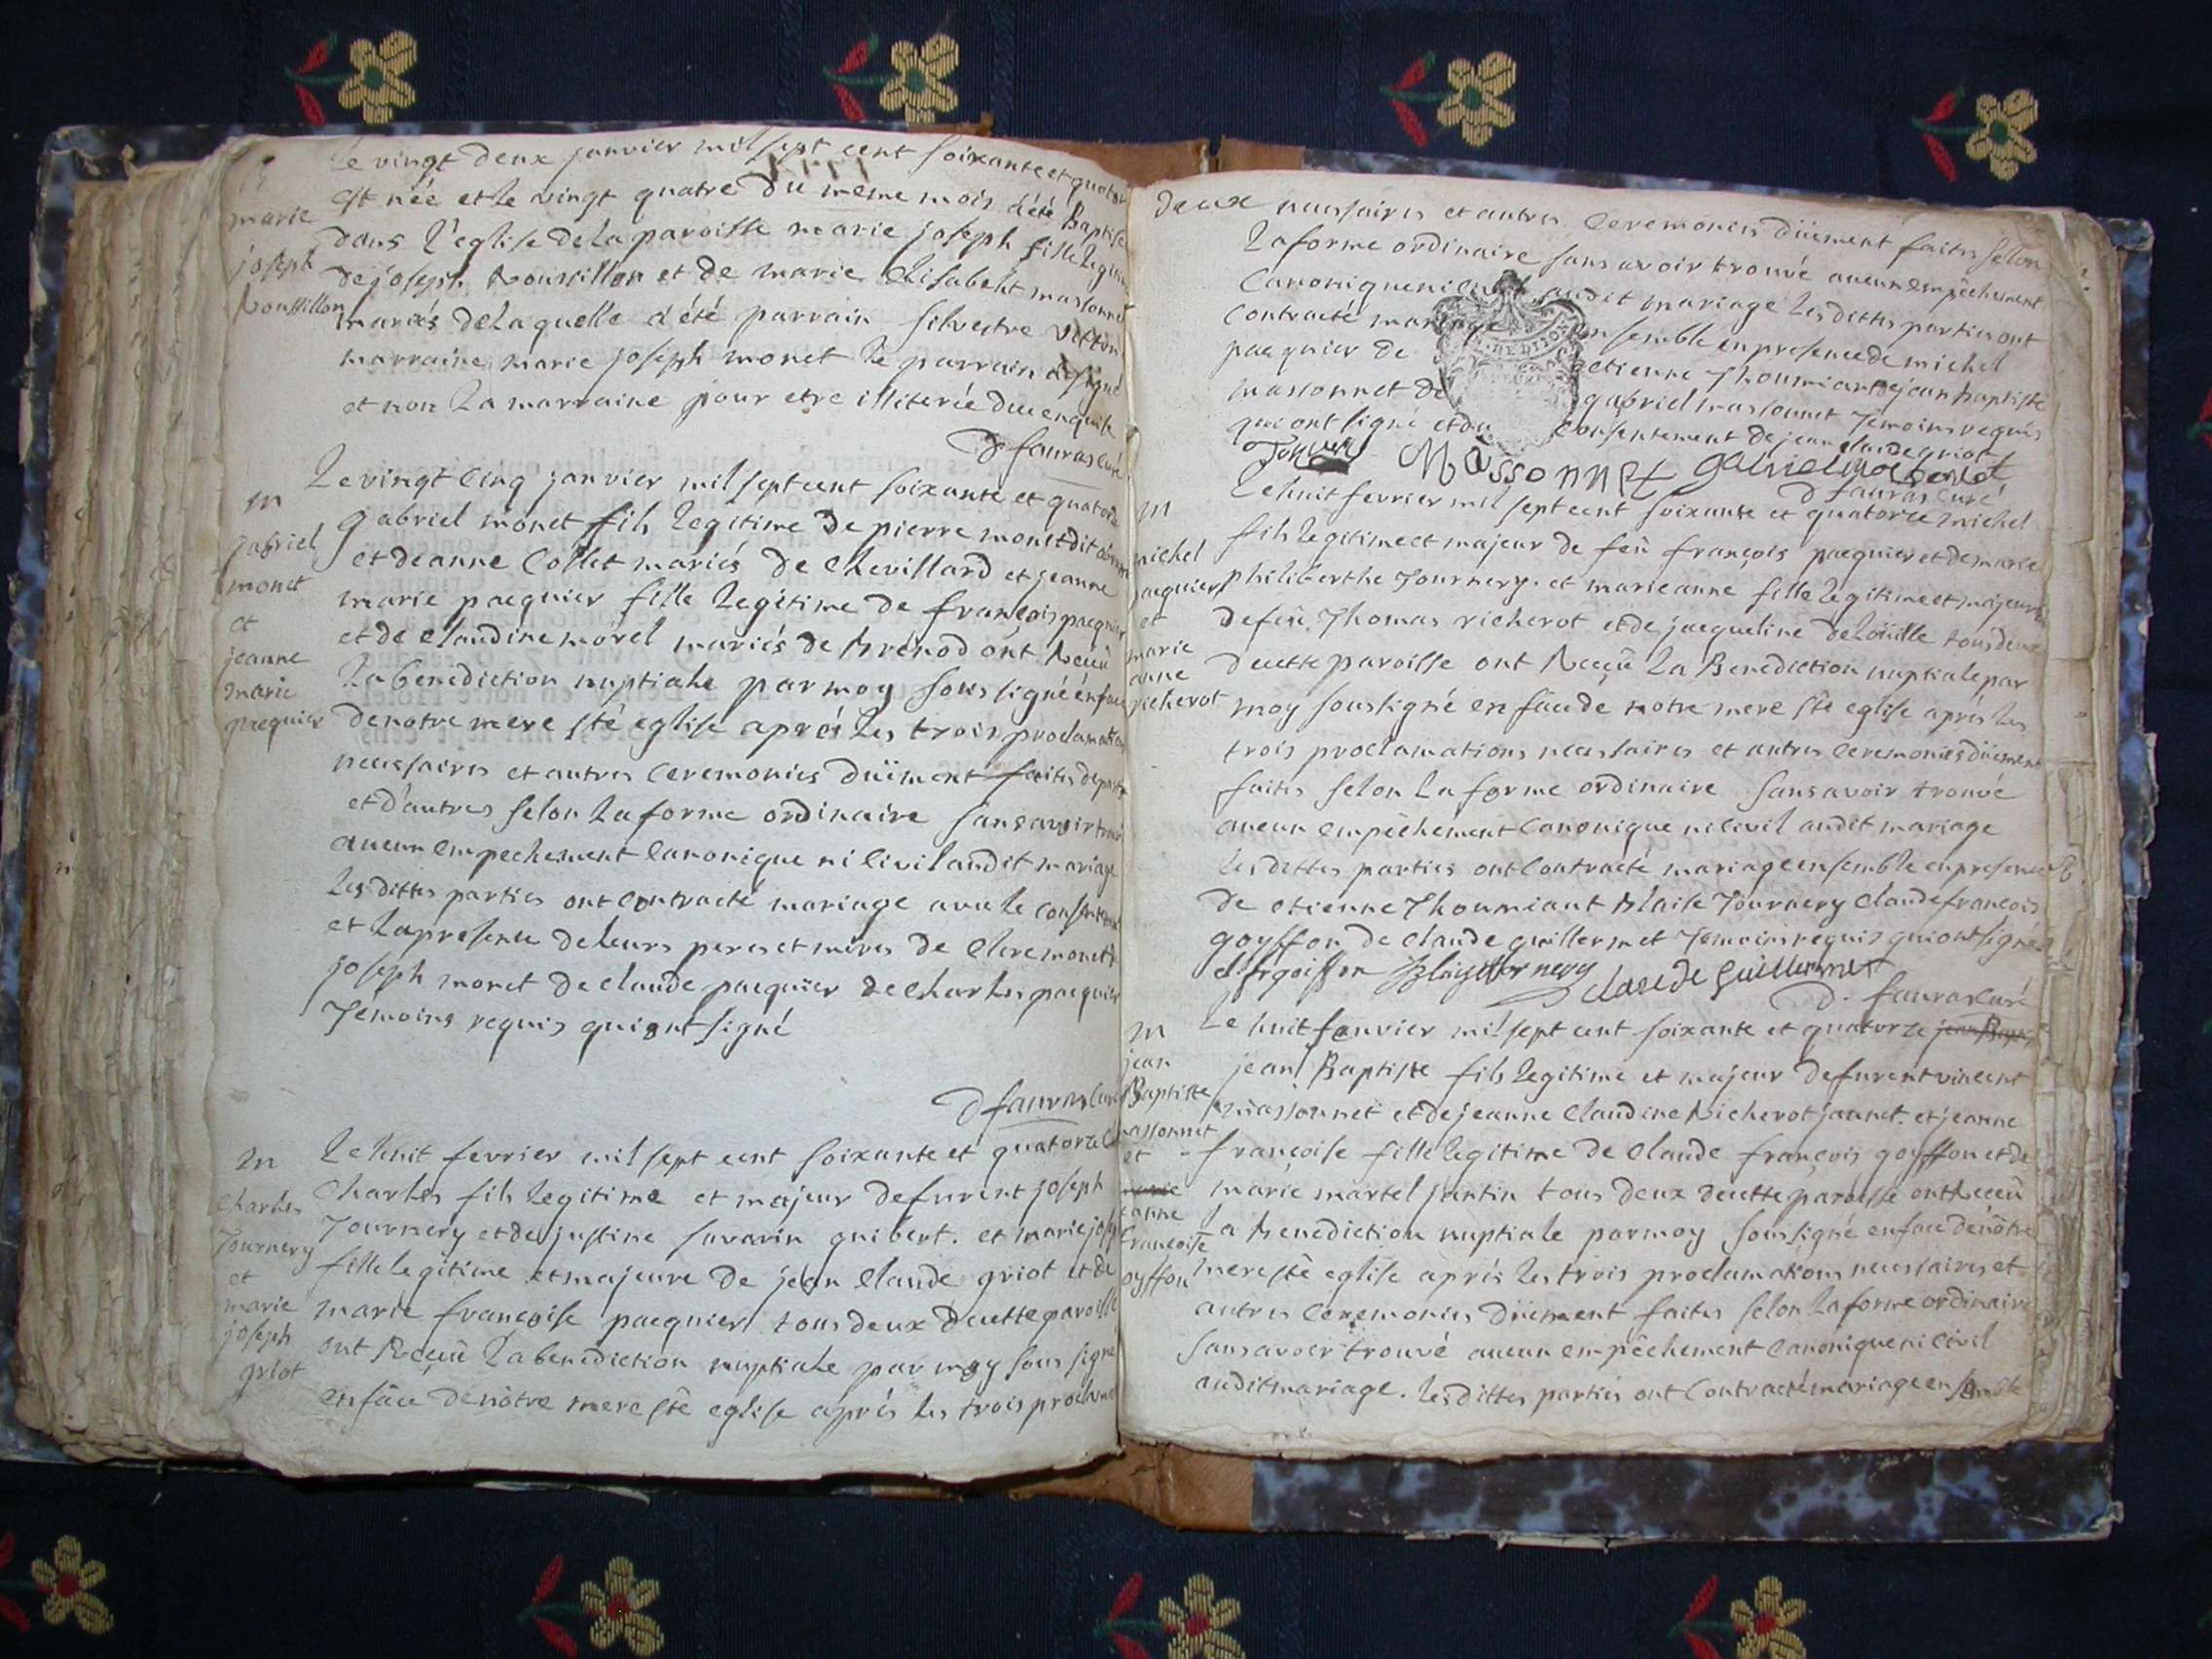 Le vingt deux janvier mil sept cent soixante et quator
est née et le vingt quatre du meme mois a été Baptisé
dans l'eglise de la paroisse marie joseph fille legitim
de joseph Roussillon et de marie Elisabeht massonnet
mariés de laquelle a été parrain silvestre
marraine marie joseph monet le parrain a signé
et non la marraine pour etre illiterée de ce enquise
D fauras curé
marie
joseph
Roussillon
Le vingt cinq janvier mil sept cent soixante et quatorze
gabriel monet fils legitime de pierre monet dit
et de anne Collet mariés de Chevillard et jeanne
marie pacquier fille legitime de françois pacquier
et de claudine morel mariés de Brenod ont Reçeü
la benediction nuptiale par moy sous signé en face
de notre mere ste eglise aprés les trois proclamations
necessaires et autres ceremonies düiment faites de part
et d'autres selon la forme ordinaire sans avoir trouvé
aucun empechement canonique ni civil audit mariage
les dittes parties ont contracté mariage avec le consentement
et la presence de leurs peres et mères de Clere monet de
joseph monet de claude pacquier de charles pacquier
Témoins requis qui ont signé
D fauras curé
m
gabriel
monet
et
jeanne
marie
pacquier
Le huit fevrier mil sept cent soixante et quatorze
Charles fils legitime et majeur de furent joseph
Tournery et de justine savarin guibert. et marie josep
fille legitime et majeure de jean Claude griot et de
marie françoise pacquier tous deux de cette paroisse
ont Reçeü la benediction nuptiale par moy sous signé
en face de nôtre mere ste eglise aprés les trois proclama
m
Charles
Tournery
et
marie
joseph
griot
deux necessaires et autres ceremonies düement faites selon
la forme ordinaire sans avoir trouvé aucun empêchement
Canonique ni audit mariage les dittes parties ont
contracté mariage ensemble en presence de michel
pacquier de etienne Thoumiant de jean Baptiste
massonnet de gabriel massonnet Témoins requis
qui ont signé et du consentement de jean claude griot
Massonnet gabriel massonet
D fauras curé
Le huit fevrier mil sept cent soixante et quatorze michel
fils legitime et majeur de feü françois pacquier et de marie
philiberthe Tournery. et marie anne fille legitime et majeure
de feü Thomas richerot et de jacqueline delouille tous deux
de cette paroisse ont Reçeü la Benediction nuptiale par
moy soussigné en face de notre mere ste eglise aprés les
trois proclamations necessaires et autres ceremonies düement
faites selon la forme ordinaire sans avoir trouvé
aucun empêchement canonique ni civil audit mariage
les dittes parties ont contracté mariage ensemble en presence
de etienne Thoumiant Blaise Tournery Claude françois
goyffon de claude guillermet Temoins requis qui ont signé
c f goiffon Blaise tornery claude guillermet
D. fauras curé
m
michel
pacquier
et
marie
anne
richerot
Le huit fevrier mil sept cent soixante et quatorze jean Bapt
jean Baptiste fils legitime et majeur de furent vincent
massonnet et de jeanne Claudine Richerot jaunet. et jeanne
françoise fille legitime de Claude françois goyffon et de
marie martel jantin tous deux de cette paroisse ont Reçeü
la Benediction nuptiale par moy sous signé en face de nôtre
mere ste eglise aprés les trois proclamations necessaires et
autres ceremonies düement faites selon la forme ordinaire
sans avoir trouvé aucun empêchement canonique ni civil
audit mariage. les dittes parties ont contracté mariage ensemble
m
jean
Baptiste
massonnet
et
jeanne
françoise
goyffon